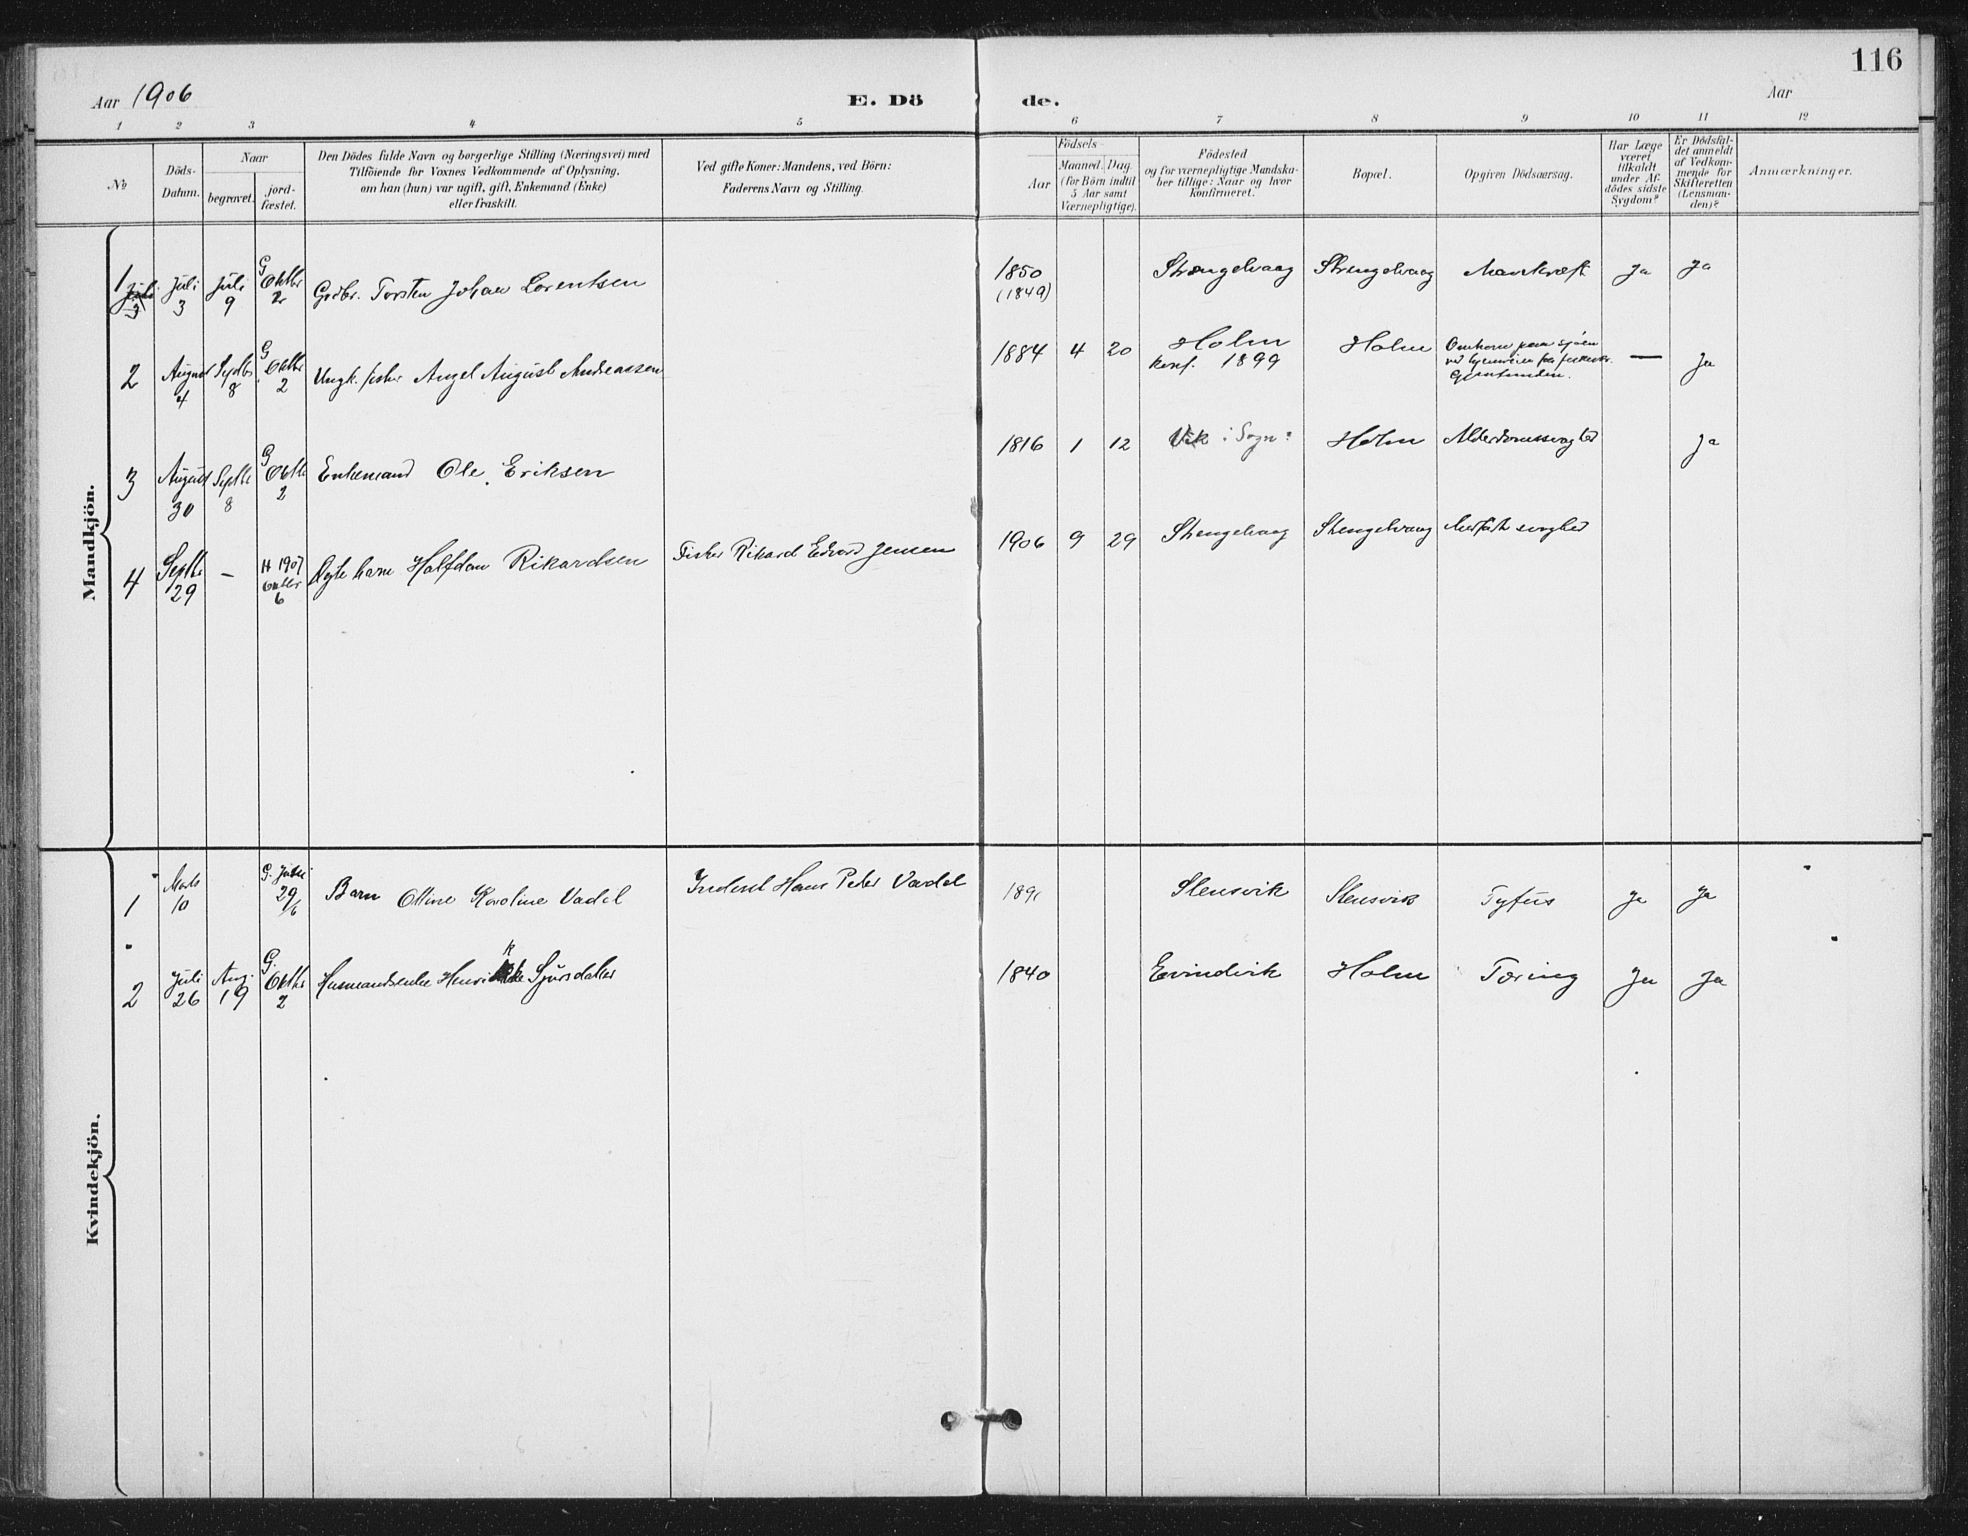 116
Aar 1906
E. Dö de.
Aar
1 2 3 4 5 6 7 8 9 10 11 12
No
Döds-
Datum.
Naar
begravet.
jord-
fæstet.
Den Dödes fulde Navn og borgerlige Stilling (Næringsvei) med
Tilföiende for Voxnes Vedkommende af Oplysning,
om han (hun) var ugift, gift, Enkemand (Enke)
eller fraskilt.
Ved gifte Koner: Mandens, ved Börn:
Faderens Navn og Stilling.
Födsels-
Aar
Maaned. Dag.
(for Börn indtil
5 Aar samt
Værnepligtige).
Födested
og for værnepligtige Mandska-
ber tillige: Naar og hvor
konfirmeret.
Bopæl.
Opgiven Dödsaarsag.
Har Læge
været
tilkaldt
under Af-
dödes sidste
Sygdom?
Er Dödsfal-
det anmeldt
af Vedkom-
mende for
Skifteretten
(Lensman-
den)?
Anmærkninger.
Mandkjön.
1 Juli 3 Juli 9 G Oktbr 2 Grdbr. Torsten Johan Lorentsen 1850 (1849) Strengelvaag Strengelvaag Mavekræft Ja Ja
2 August 4 Septbr 8 G Oktbr 2 Ungk. fisker Angel August Andreassen 1884 4 20 Holm Holm Omkom paa sjöen
konf. 1899 ved hjemreise fra — Ja
3 August 30 Septbr 8 G Oktbr 2 Enkemand Ole Eriksen 1816 1 12 Vik i Sogn? Holm Alderdomssvaghed Ja
4 Septbr 29 — H 1907 Oktbr 6 Ægte barn Halfdan Rikardsen Fisker Rikard Edvard Jensen 1906 9 29 Strengelvaag Strengelvaag Medfödt svaghed
Kvindekjön.
1 Marts 10 G. 29/6 Barn Otine Karoline Vadel Inderst Hans Peter Vadel 1891 Stensvik Stensvik Tyfus Ja Ja
2 Juli 26 Aug. 19 G. Oktbr 2 Husmandsenke Sjursdatter 1840 Eivindvik Holm Tæring Ja Ja